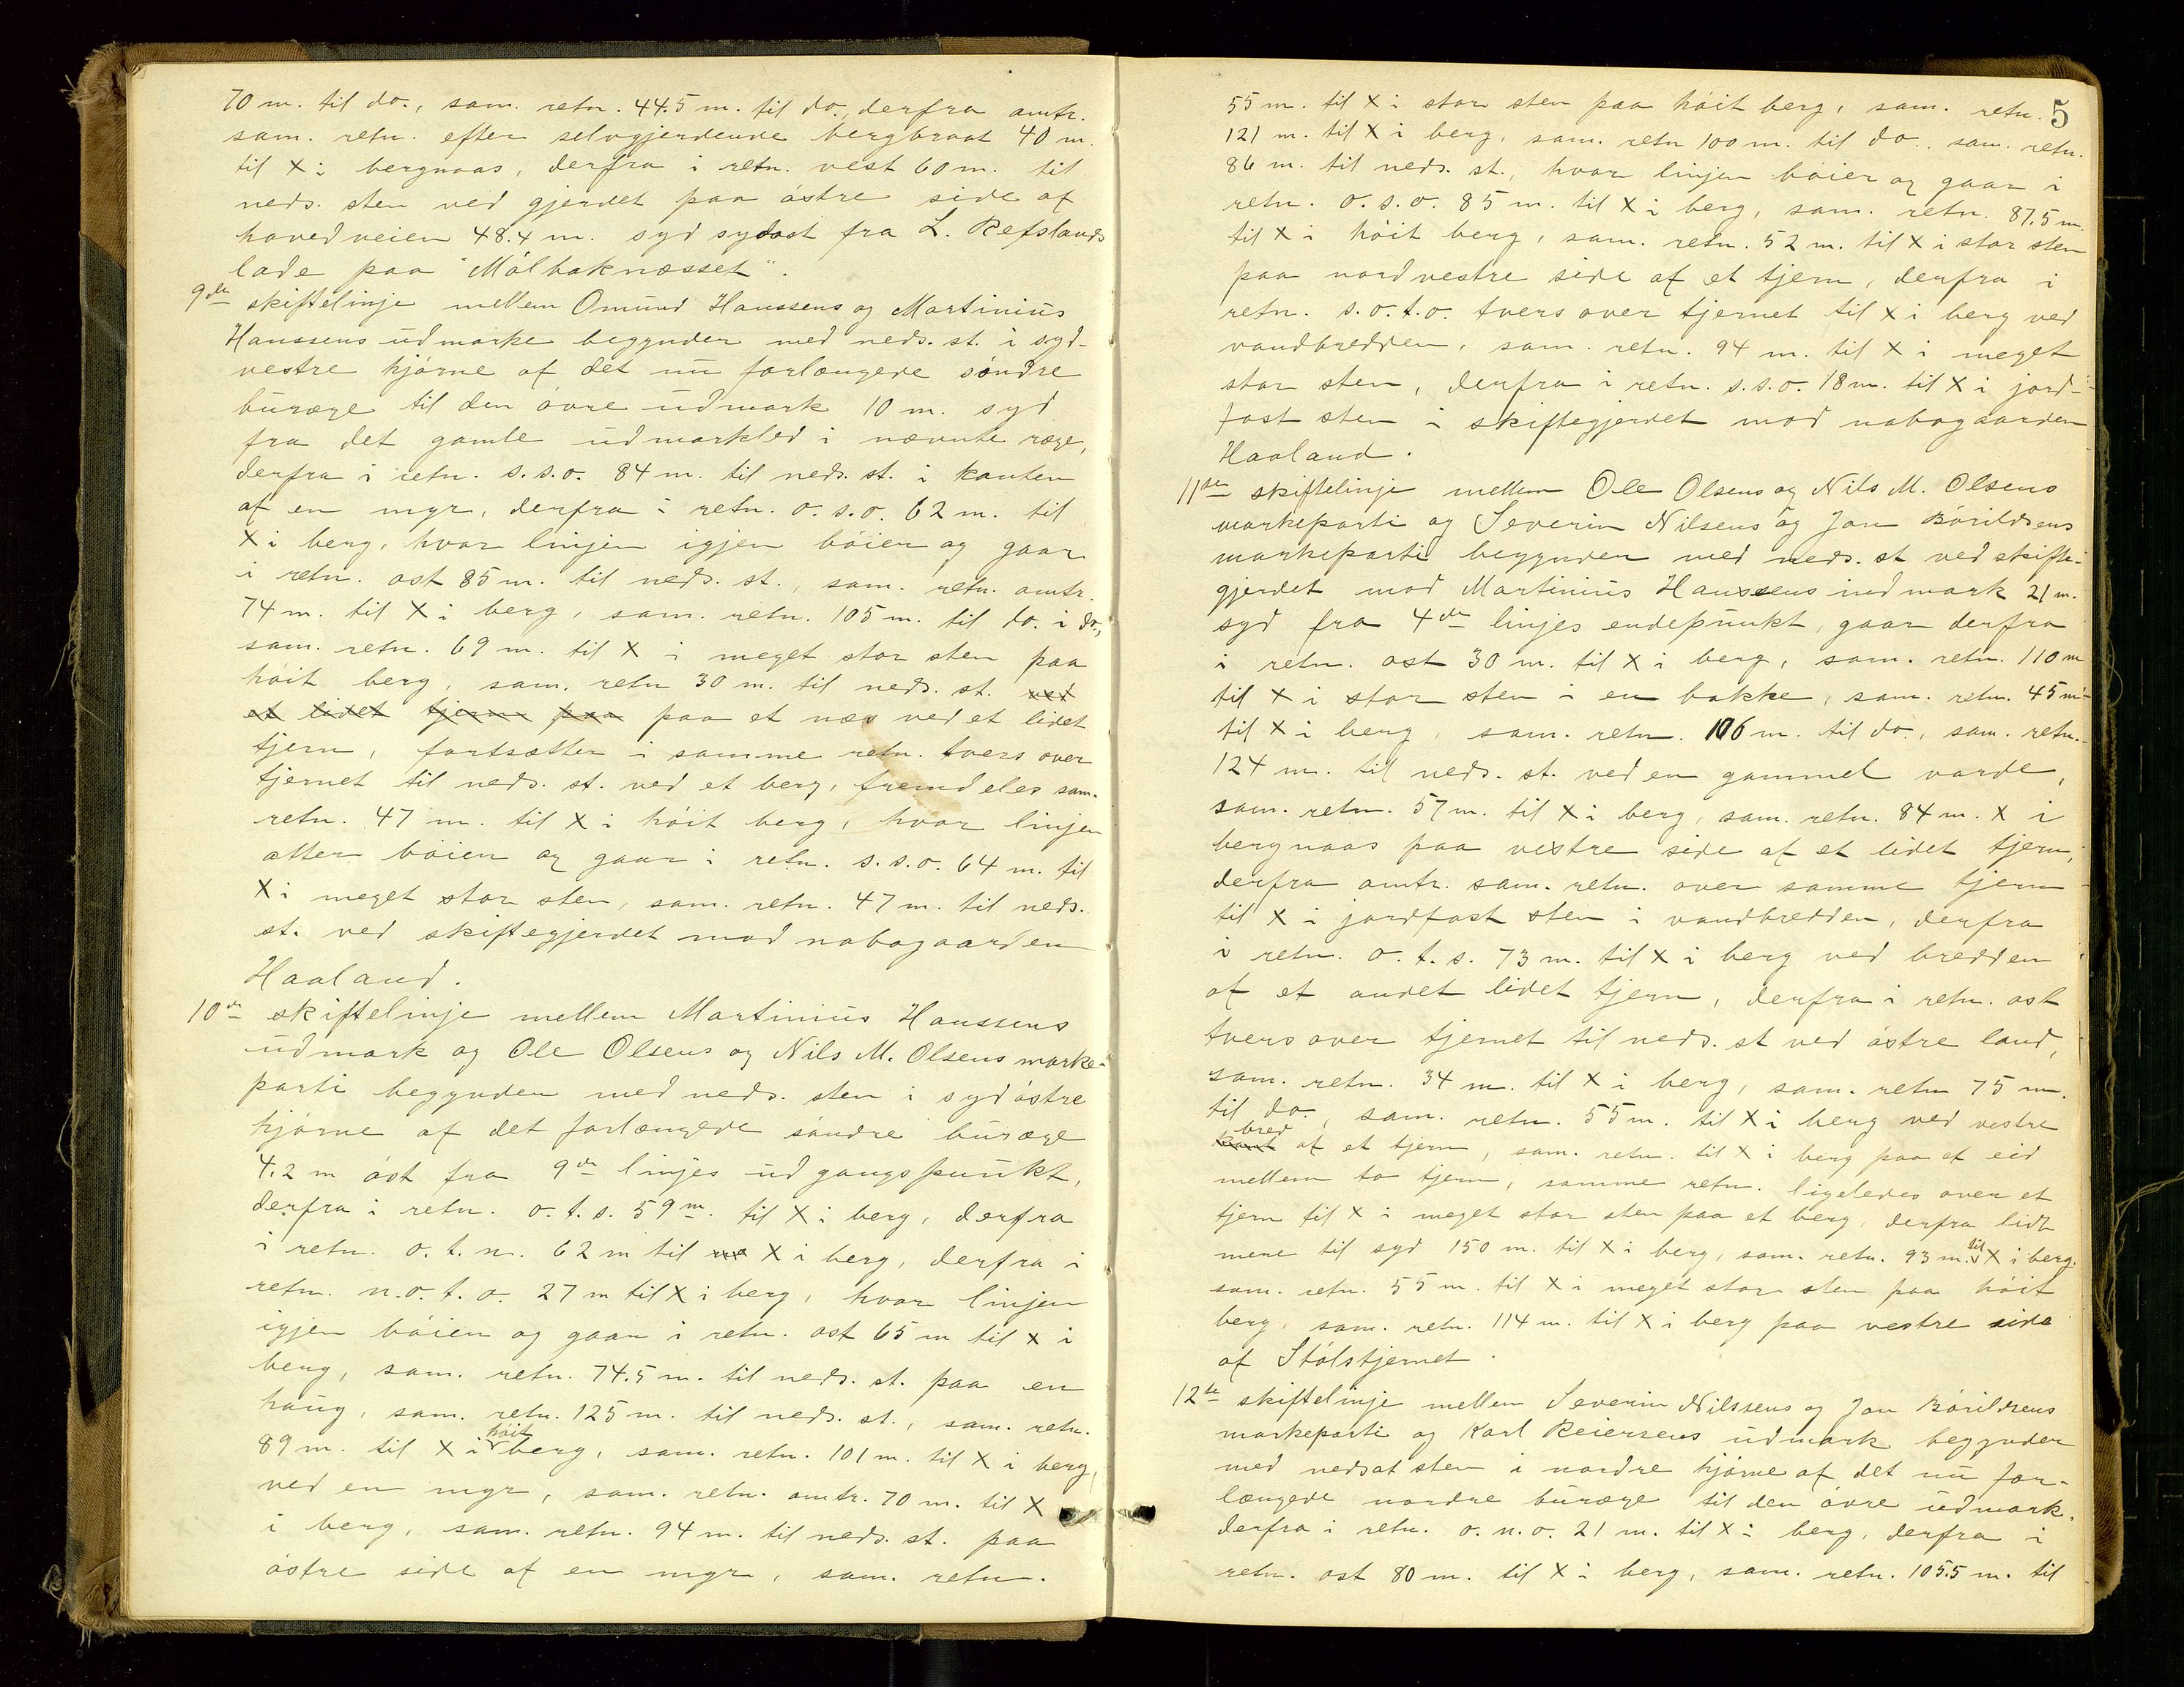 70 m. til do., sam. retn. 44.5 m. til do., derfra omtr.
sam. retn. efter selvgjerdende bergbraat 40 m.
til X i bergnaas, derfra i retn. vest 60 m. til
neds. sten ved gjerdet paa østre side af
hovedveien 48.4 m. syd sydost fra L. Refslands
lade paa "Mólbaknæsset".
9de skiftelinje mellem Omund Hanssens og Martinius
Hanssens udmarke begynder med neds. st. i syd-
vestre hjórne af det nu forlængede sóndre
buræge til den óvre udmark 10 m. syd
fra det gamle udmarkled i nævnte ræge,
derfra i retn. s.s.o. 84 m. til neds. st. i kanten
af en myr, derfra i retn. o.s.o. 62 m. til
X i berg, hvor linjen igjen bóier og gaar
i retn. ost 85 m. til neds. st., sam. retn. omtr.
74 m. til X i berg, sam. retn. 105 m. til do. i do.,
sam. retn. 69 m. til X i meget stor sten paa
hóit berg, sam. retn 30 m. til neds. st. ved
et lidet tjern paa paa et næs ved et lidet
tjern, fortsætter i samme retn. tvers over
tjernet til neds. st. ved et berg, fremdeles sam.
retn. 47 m. til X i hóit berg, hvor linjen
atter bóier og gaar i retn. s.s.o. 64 m. til
X i meget stor sten, sam. retn. 47 m. til neds.
st. ved skiftegjerdet mod nabogaarden
Haaland.
10de skiftelinje mellem Martinius Hanssens
udmark og Ole Olsens og Nils M. Olsens marke-
parti begynder med neds. sten i sydóstre
hjórne af det forlængede sóndre buræge
4.2 m óst fra 9de linjes udgangspunkt,
derfra i retn. o.t.s. 59 m. til X i berg, derfra
i retn. o.t.n. 62 m til X i berg, derfra i
retn. n.o.t.o. 27 m til X i berg, hvor linjen
igjen bóier og gaar i retn. ost 65 m til X i
berg, sam. retn. 74.5 m. til neds. st. paa en
haug, sam. retn. 125 m. til neds. st., sam. retn.
89 m. til X i hóit berg, sam. retn. 101 m. til X i berg,
ved en myr, sam. retn. omtr. 70 m. til X
i berg, sam. retn. 94 m. til neds. st. paa
óstre side af en myr, sam. retn.
5
55 m. til X i stor sten paa hóit berg, sam. retn.
121 m. til X i berg, sam. retn 100 m. til do., sam. retn.
86 m. til neds. st., hvor linjen bóier og gaar i
retn. o.s.o. 85 m. til X i berg, sam. retn. 87.5 m.
til X i hóit berg, sam. retn. 52 m. til X i stor sten
paa nordvestre side af et tjern, derfra i
retn. s.o.t.o. tvers over tjernet til X i berg ved
vandbredden, sam. retn. 94 m. til X i meget
stor sten, derfra i retn. s.s.o. 18 m. til X i jord-
fast sten i skiftegjerdet mod nabogaarden
Haaland.
11te skiftelinje mellem Ole Olsens og Nils M. Olsens
markeparti og Severin Nilsens og Jon Bórildsens
markeparti begynder med neds. st ved skifte-
gjerdet mod Martinius Hanssens indmark 21 m.
syd fra 4de linjes endepunkt, gaar derfra
i retn. ost 30 m. til X i berg, sam. retn. 110 m
til X i stor sten i en bakke, sam. retn. 45 m
til X i berg, sam. retn. 106 m. til do., sam. retn.
124 m. til neds. st. ved en gammel varde,
sam. retn. 57 m. til X i berg, sam. retn. 84 m. X i
bergnaas paa vestre side af et lidet tjern,
derfra omtr. sam. retn. over samme tjern
til X i jordfast sten i vandbredden, derfra
i retn. o.t.s. 73 m. til X i berg ved bredden
af et andet lidet tjern, derfra i retn. ost
tvers over tjernet til neds. st ved óstre land,
sam. retn. 34 m. til X i berg, sam. retn 75 m.
til do., sam. retn. 55 m. til X i berg ved vestre
kant bred af et tjern, sam. retn. til X i berg paa et eid
mellem to tjern, samme retn. ligeledes over et
tjern til X i meget stor sten paa et berg, derfra lidt
mere til syd 150 m. til X i berg, sam. retn. 93 m. til X i berg.
sam. retn. 55 m. til X i meget stor sten paa hóit
berg, sam. retn. 114 m. til X i berg paa vestre side
af Stólstjernet.
12te skiftelinje mellem Severin Nilssens og Jon Bórildsens
markeparti og Karl Reiersens udmark begynder
med nedsat sten i nordre hjórne af det nu for-
længede nordre buræge til den óvre udmark.
derfra i retn. o.n.o. 21 m. til X i berg, derfra i
retn. ost 80 m. til X i berg, sam. retn. 105.5 m. til